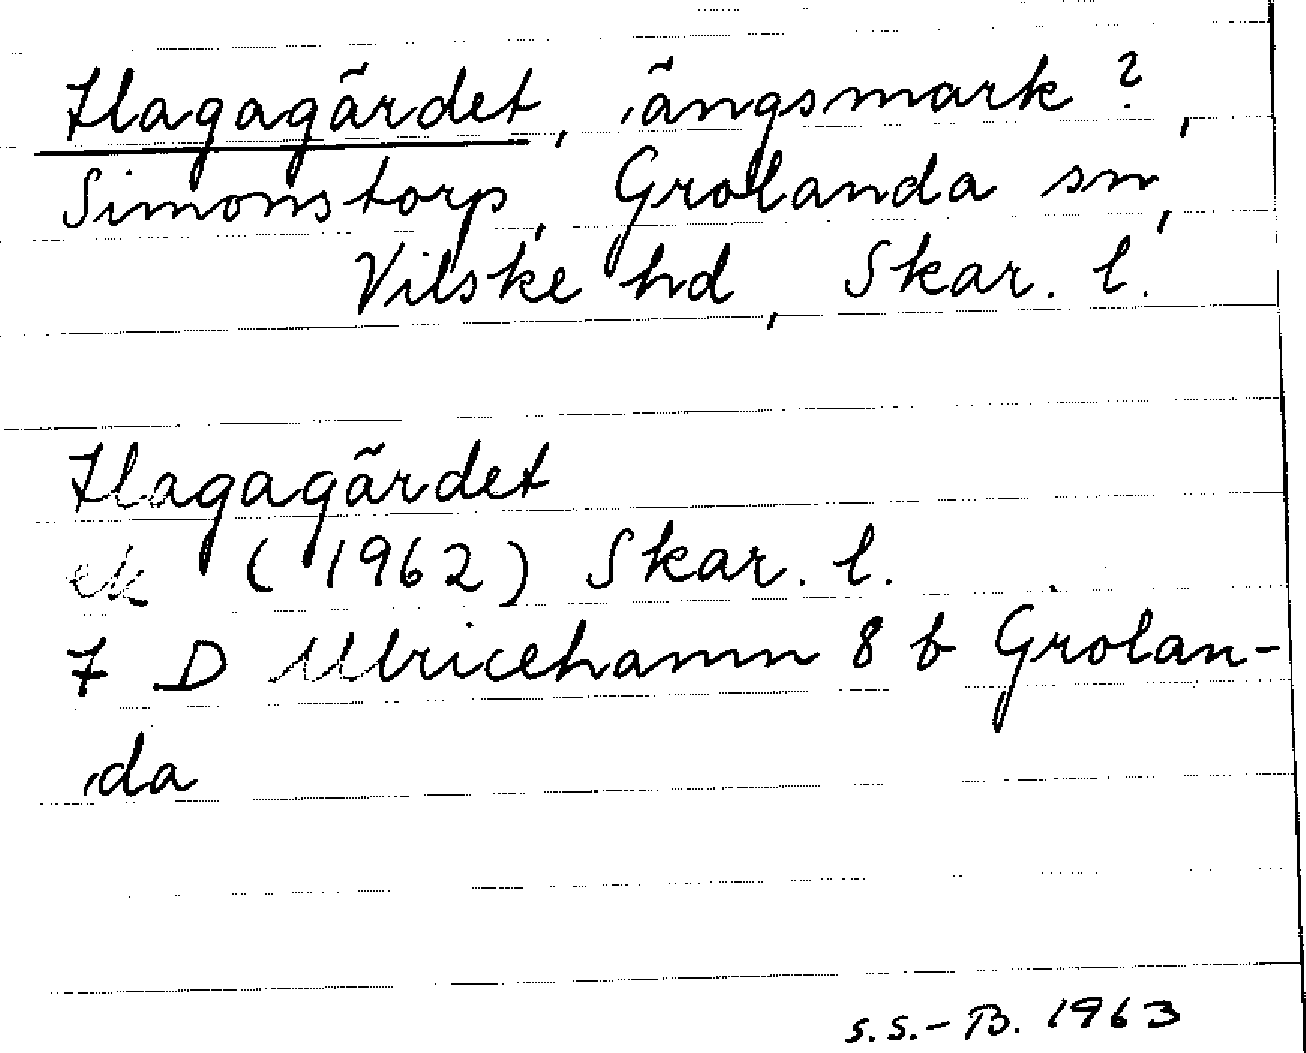 Hagagärdet, ängsmark?,
Simonstorp, Grolanda sn,
Vilske hd, Skar. l.
Hagagärdet
ek (1962) Skar. l.
7 D Ulricehamn 8 b Grolan-
da
S.S.-B. 1963